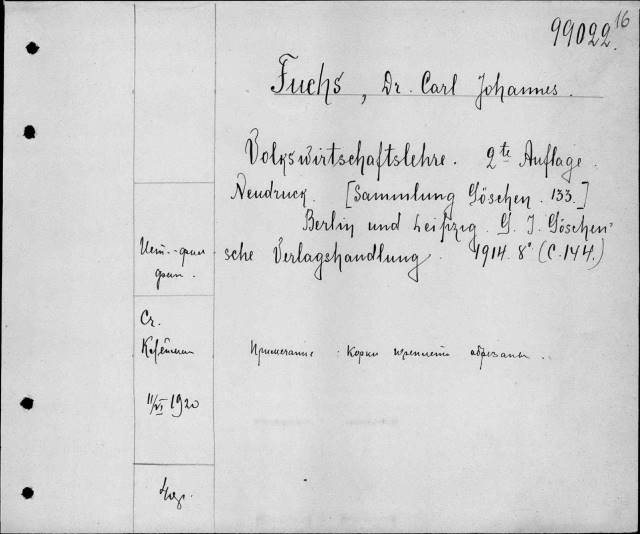 99022 16
Fuchs, Dr. Carl Johannes.
Volkswirtschaftslehre. 2te Auflage.
Neudruck. [Sammlung Göschen. 133.]
Berlin und Leipzig. G. J. Göschen'
sche Verlagshandlung. 1914. 8° (С. 144.)
Ист.-фил
Ст.
11/VI 1920
Примечание: Корки переплета обрезаны.